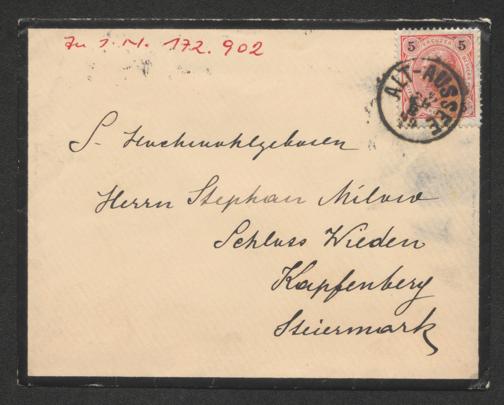 Zu I.N. 172.902
5 KREUZER 5
ALT-AUSSEE
S. Hochwohlgeboren
Herrn Stephan Milow
Schloss Wieden
Kapfenberg
Steiermark